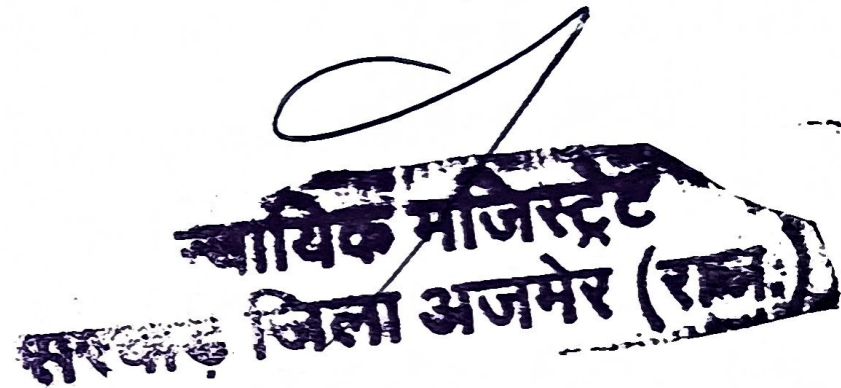 न्यायिक मजिस्ट्रेट
सरवाड़ जिला अजमेर (राज.)